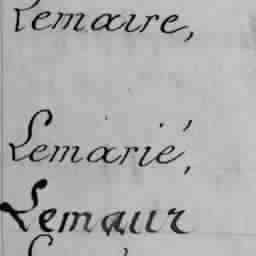 Lemaire,
Lemarié,
Lemaur